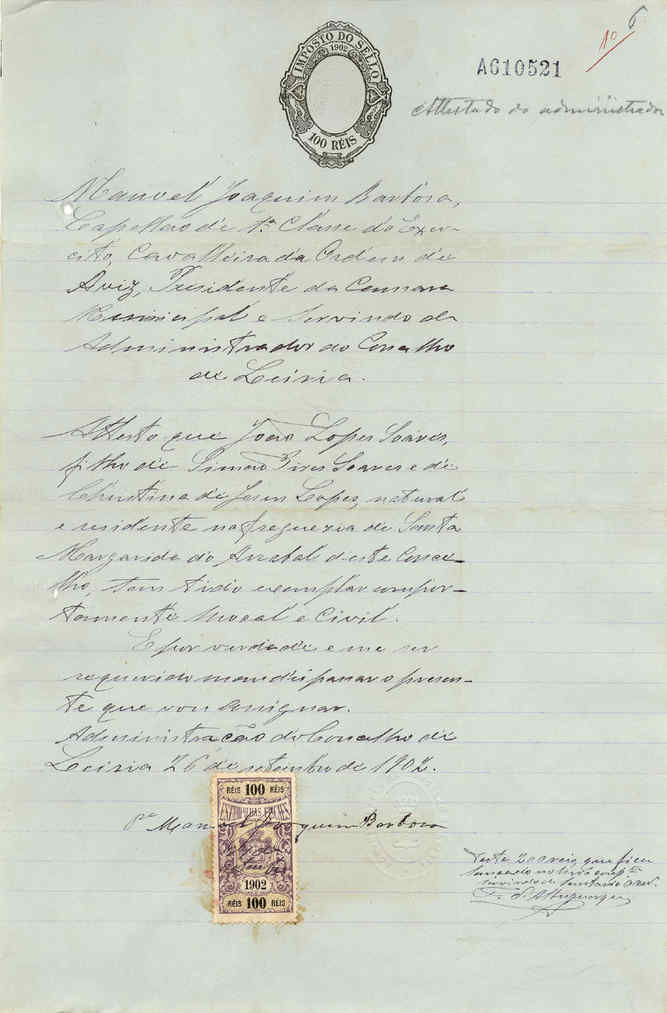 IMPOSTO DO SELLO
1902
100 RÉIS
A610521
10 6
Attestado do administrador
Manoel Joaquim Barbosa,
Capellão de 1ª Classe do Exer-
cito, Cavalleiro da Ordem de
Aviz, Presidente da Camara
Municipal e servindo de
Administrador do Concelho
de Leiria.
Attesto que João Lopes Soares,
filho de Simão Pires Soares e de
Christina de Jesus Lopes, natural
e residente na freguezia de Santa
Margarida do Arrabal d'este Conce-
lho, tem tido exemplar compor-
tamento Moral e Civil.
E por verdade e me ser
requerido mandei passar o presen-
te que vou assignar.
Administração do Concelho de
Leiria 26 de setembro de 1902.
RÉIS 100 RÉIS
Manoel Joaquim Barbosa
1902
RÉIS 100 RÉIS
200 reis que fica